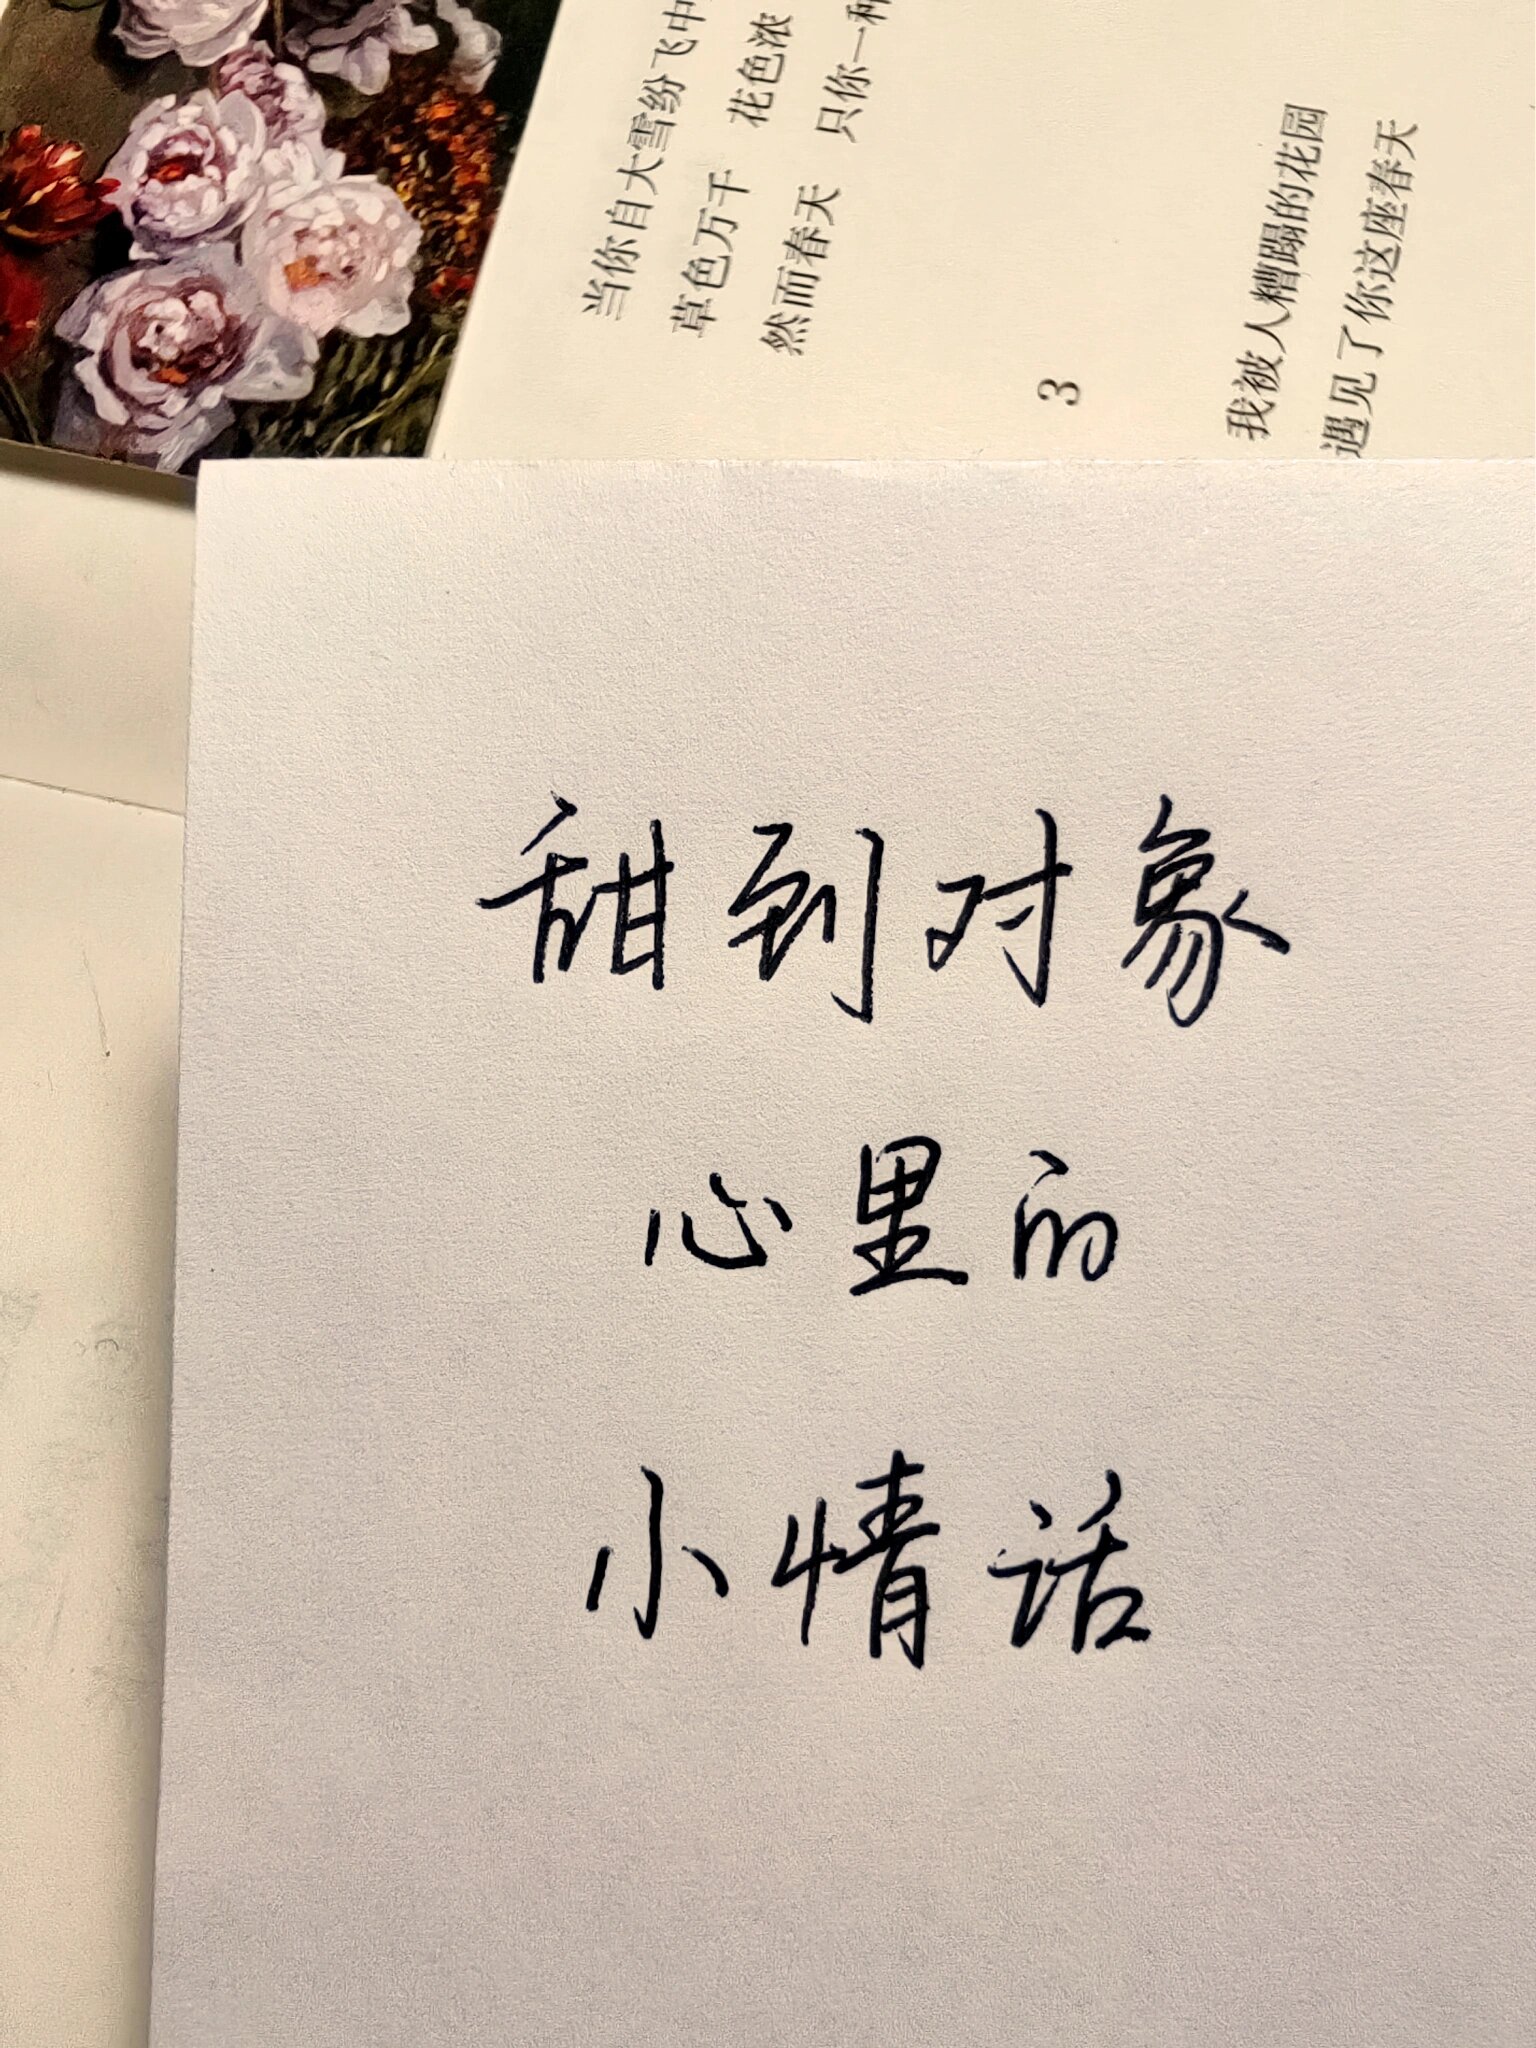 当你自大雪纷飞中
草色万千 花色浓
然而春天 只你一种
3
我被人糟蹋的花园
遇见了你这座春天
甜到对象
心里的
小情话